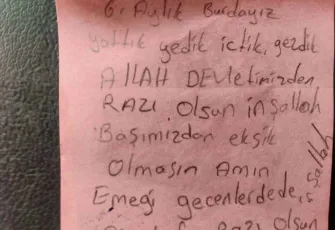 6. Aylık Burdayız
yattık yedik içtik, gezdik
ALLAH DEVletimizden
RAZI Olsun inşallah
Başımızdan eksik
Olmasın Amin
Emeği geçenlerdede, inşallah
RAZI Olsun